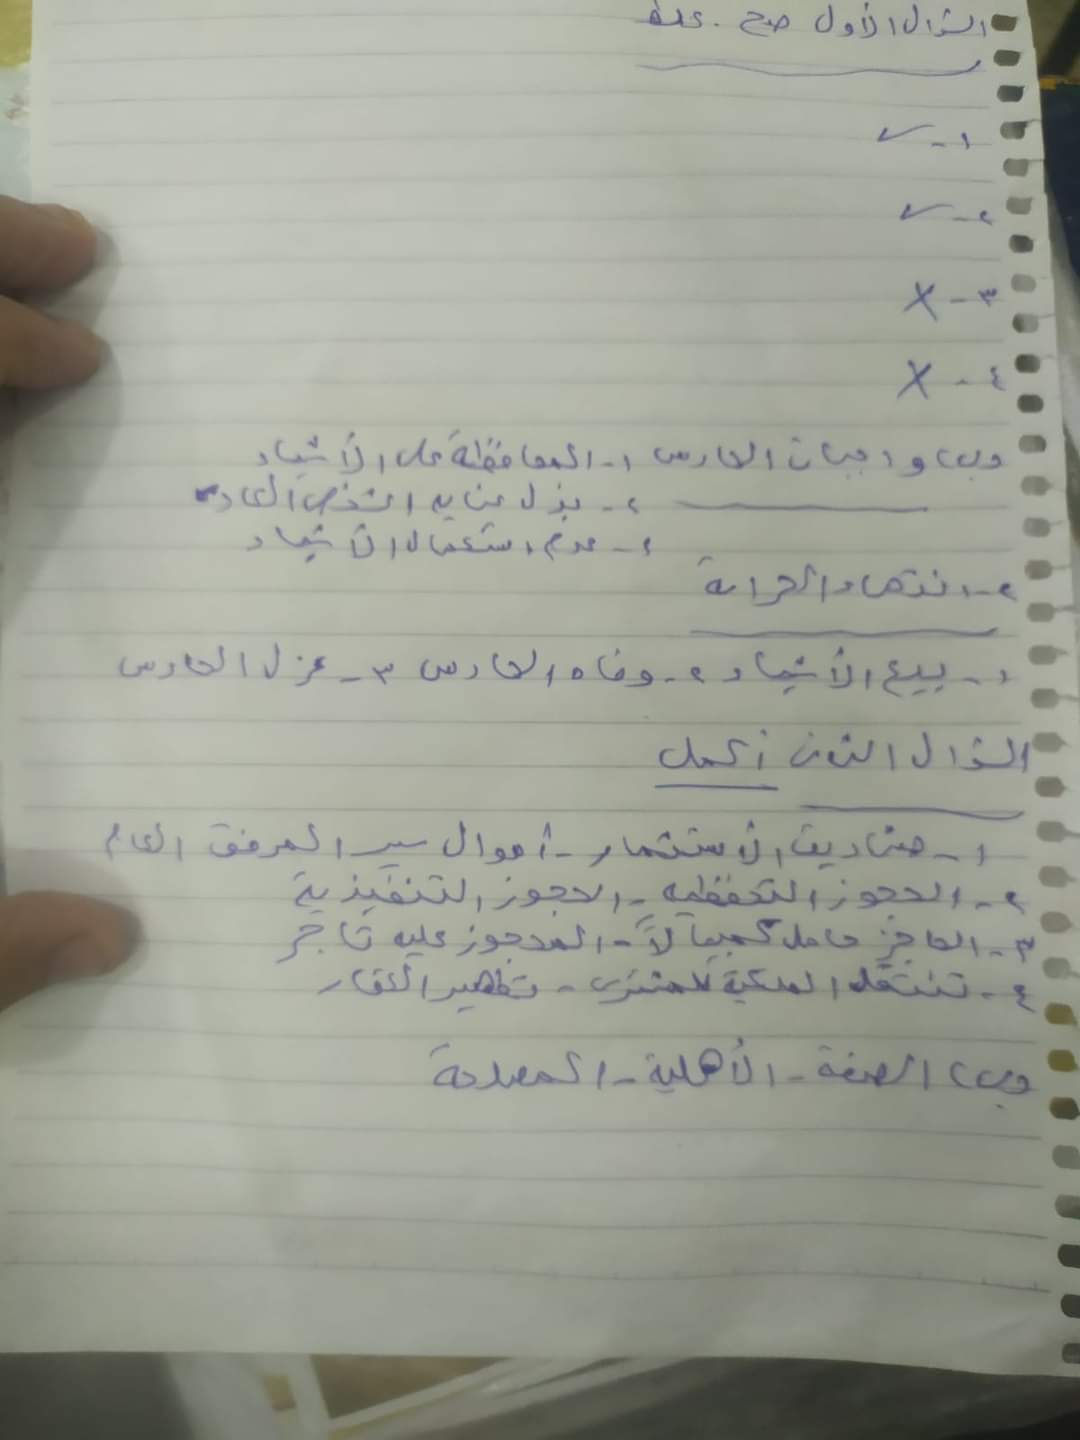 السؤال الأول صح . غلط
١- ✓
٢- ✓
٣- X
٤- X
وب) واجبات الحارس ١- المحافظة على الأشياء
٢- بذل عناية الشخص العادي
٢- عدم استعمال الأشياء
٢- انتهاء الحراسة
١- بيع الأشياء ٢- وفاه الحارس ٣- عزل الحارس
السؤال الثاني أكمل
١- صناديق الأستثمار - أموال سير المرفق العام
٢- الحجوز التحفظيه - الحجوز التنفيذية
٣- الحاجز حامل كمبيالة - المحجوز عليه تاجر
٤- تنتقل الملكية للمشترى - تطهير العقار
وب) الصفة - الأهلية - المصلحة